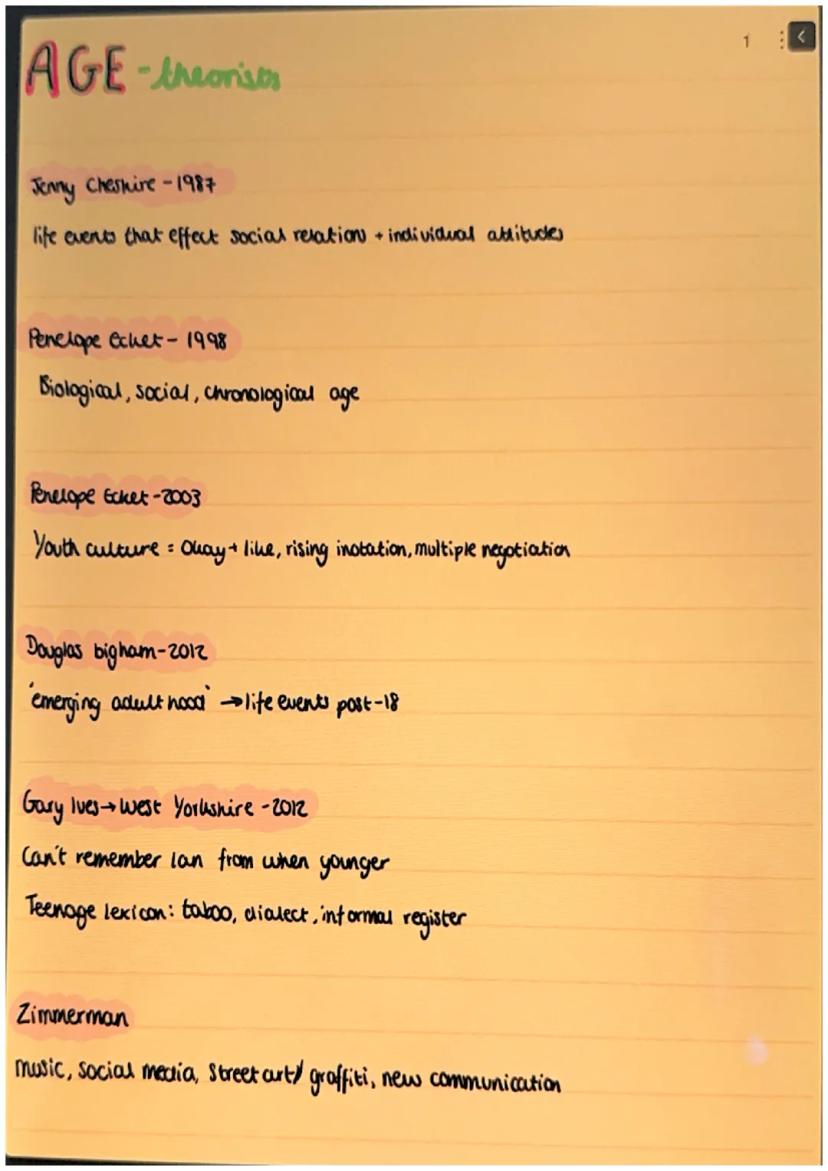 1
AGE - theorists
Jenny Cheshire - 1987
life events that effect social relations + individual attitudes
Penelope Ecket - 1998
Biological, social, chronological age
Penelope Ecket - 2003
Youth culture = Okay + like, rising inotation, multiple negotiation
Douglas bigham - 2012
'emerging adulthood' → life events post-18
Gary Ives → West Yorkshire - 2012
Can't remember lan from when younger
Teenage lexicon: taboo, dialect, informal register
Zimmerman
music, social media, street art / graffiti, new communication